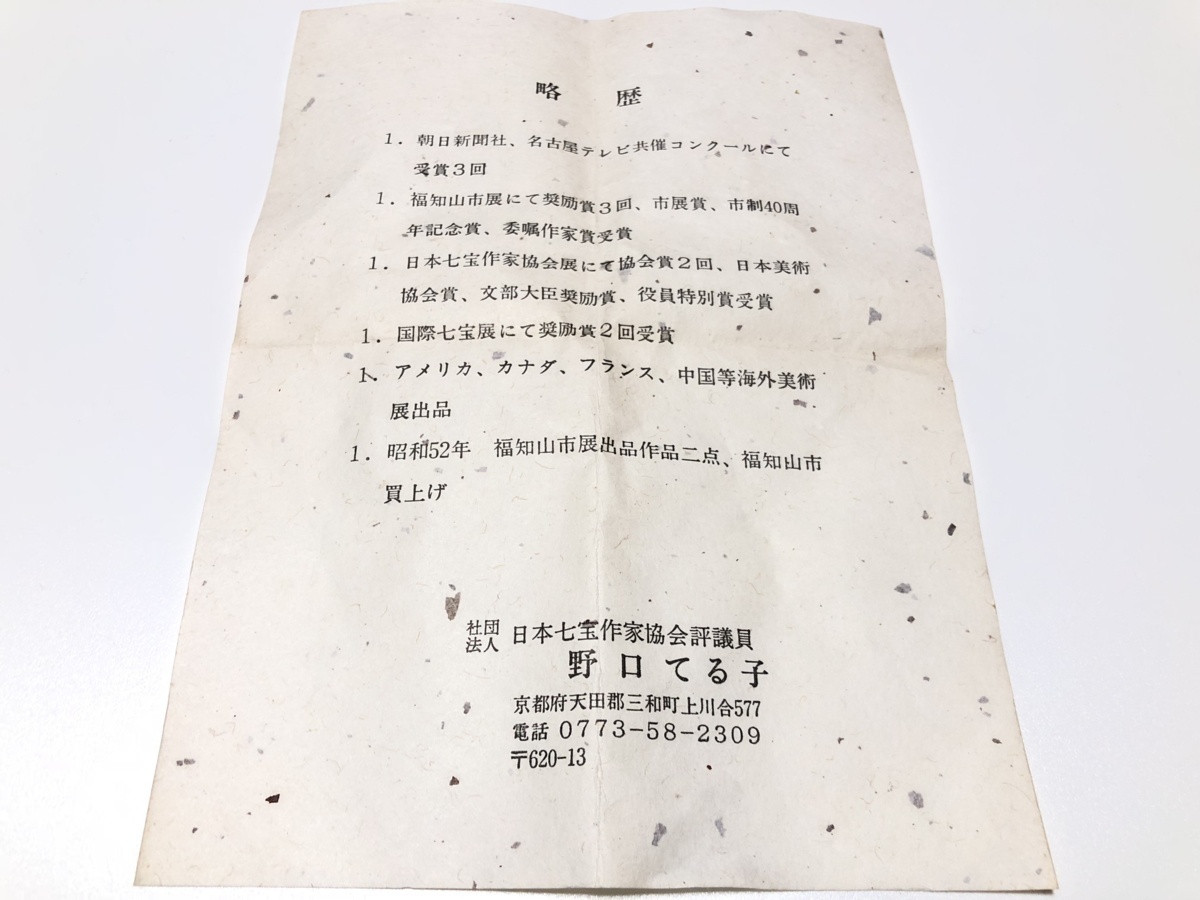 略 歴
1. 朝日新聞社、名古屋テレビ共催コンクールにて
受賞3回
1. 福知山市展にて奨励賞3回、市展賞、市制40周
年記念賞、委嘱作家賞受賞
1. 日本七宝作家協会展にて協会賞2回、日本美術
協会賞、文部大臣奨励賞、役員特別賞受賞
1. 国際七宝展にて奨励賞2回受賞
1. アメリカ、カナダ、フランス、中国等海外美術
展出品
1. 昭和52年 福知山市展出品作品二点、福知山市
買上げ
社団法人 日本七宝作家協会評議員
野口てる子
京都府天田郡三和町上川合577
電話 0773-58-2309
〒620-13